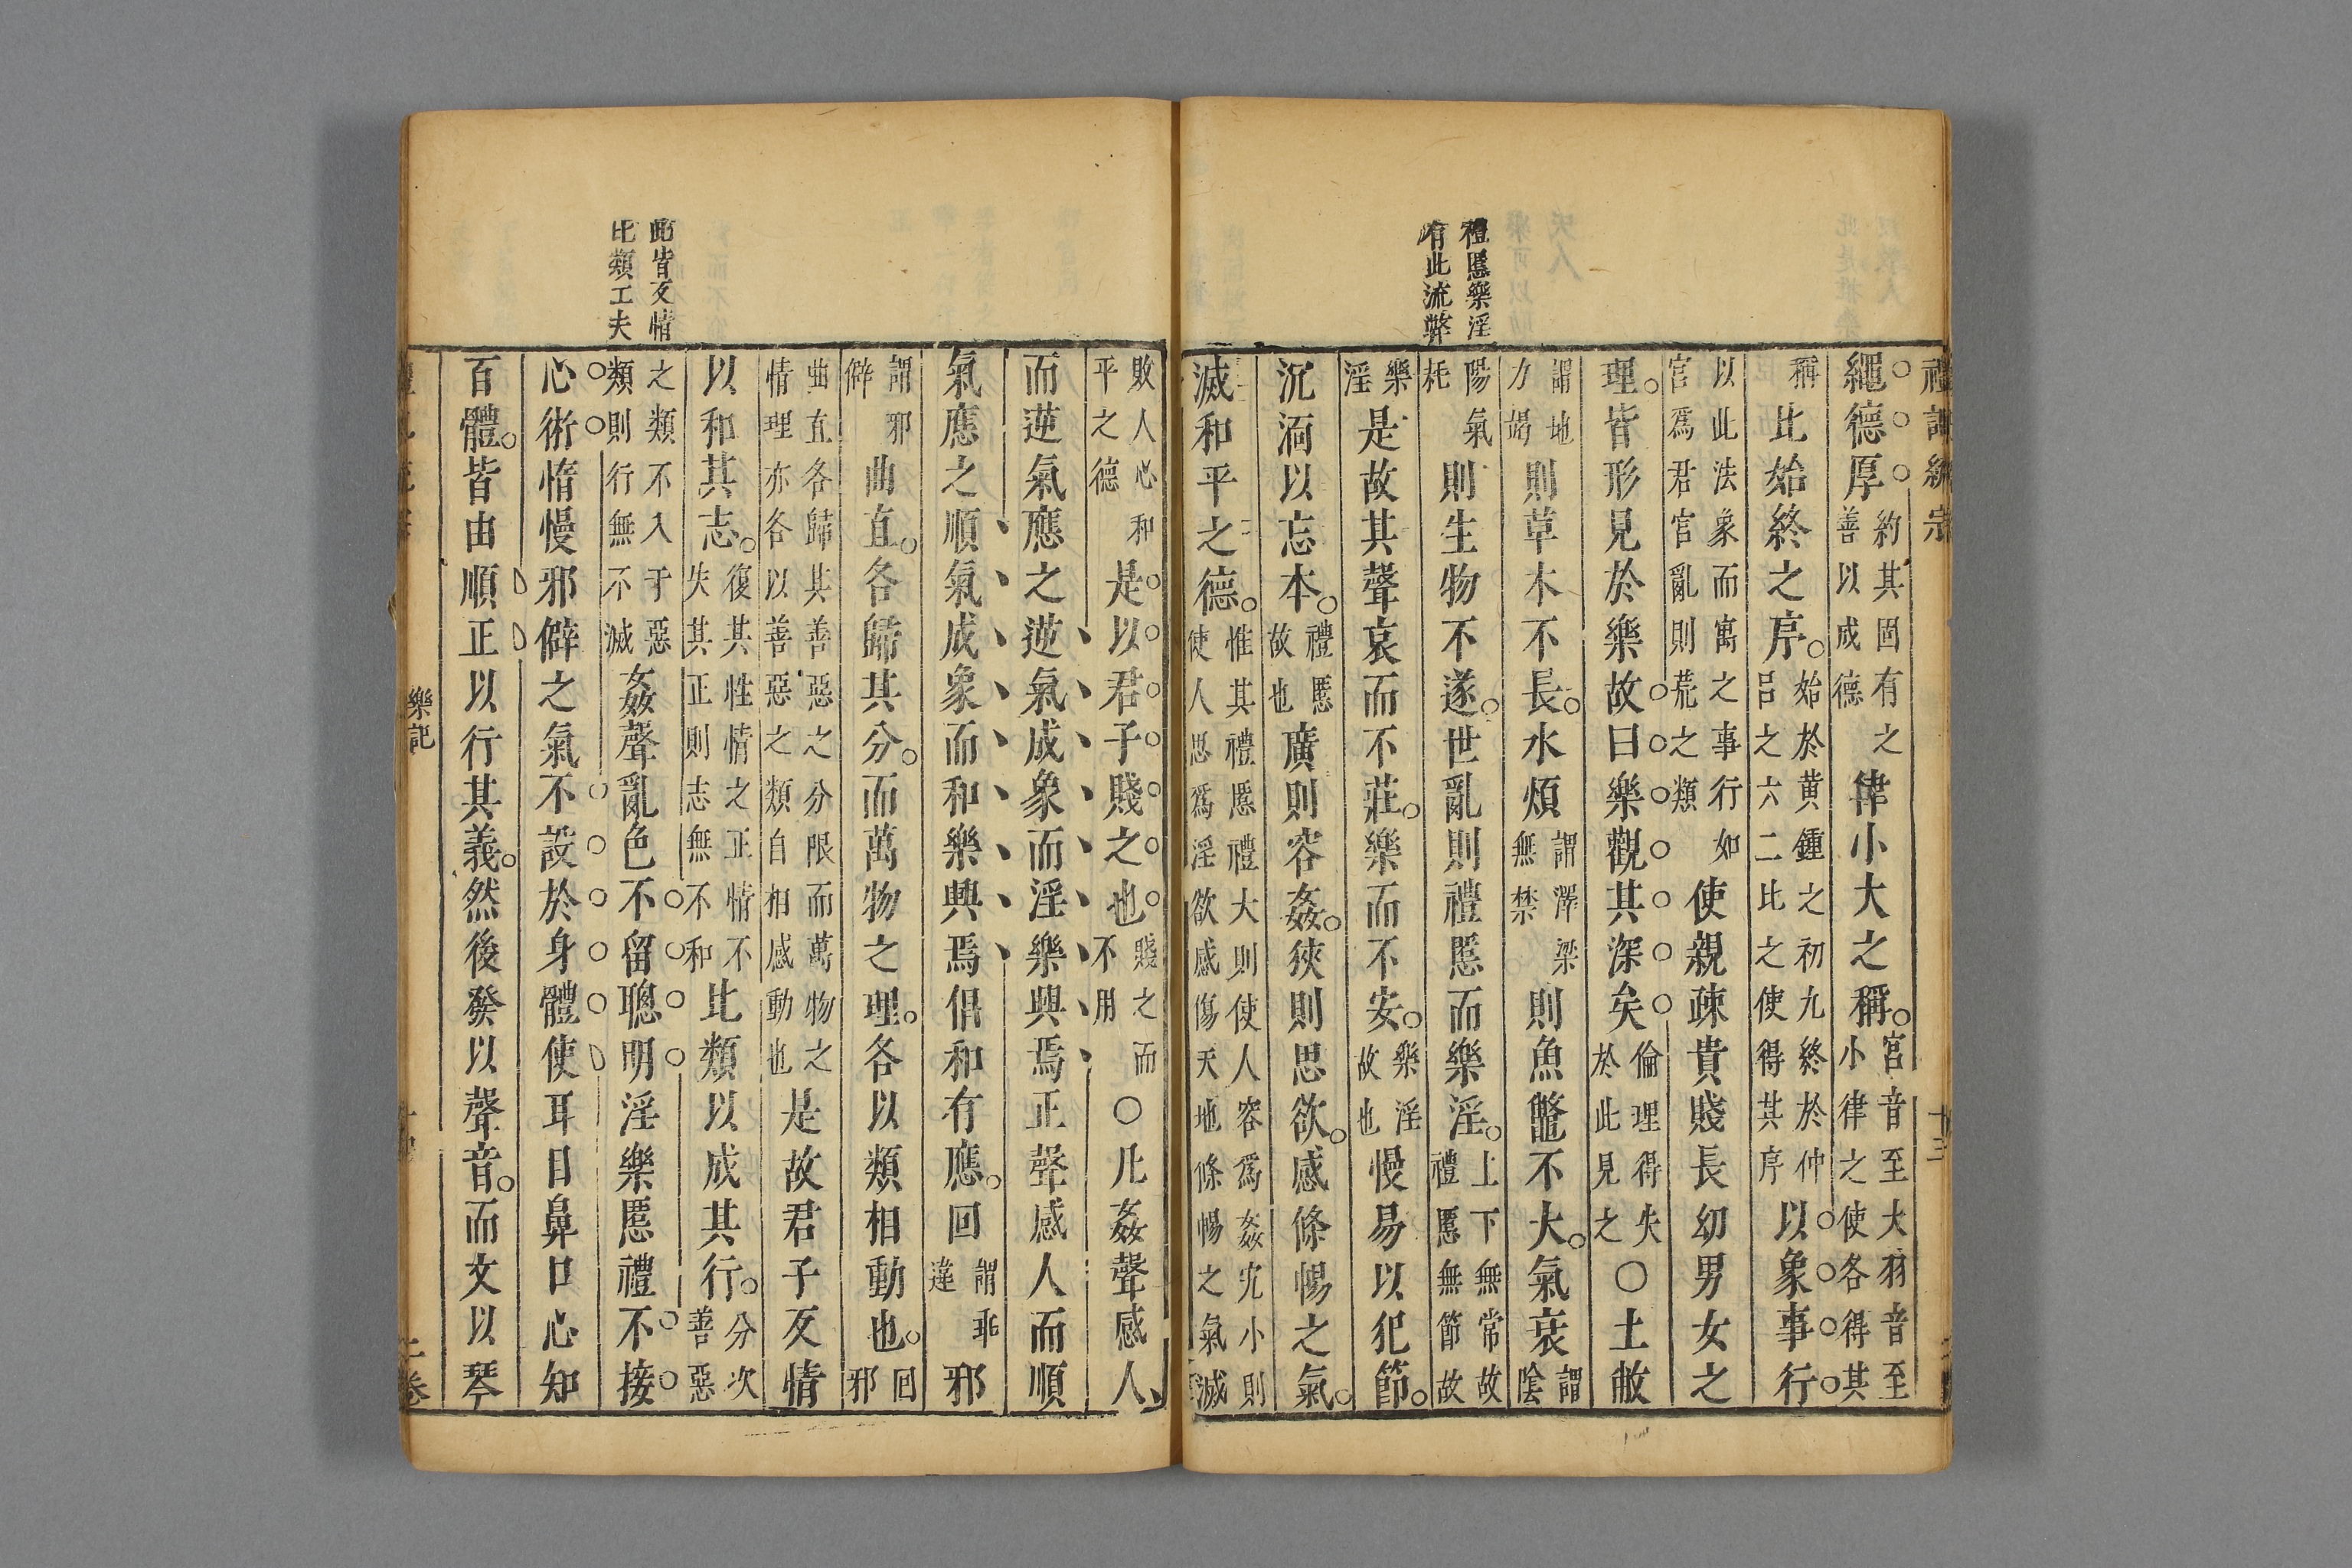 禮慝樂淫
有此流弊
禮記
十三
繩德厚約其固有之善以成德律小大之稱。宮音至大羽音至小律之使各得其
稱比始終之序。始於黃鍾之初九終於仲呂之六二比之使得其序以象事行
以此法象而寓之事行如宮爲君宮亂則荒之類使親疎貴賤長幼男女之
理。皆形見於樂故曰樂觀其深矣倫理得失於此見之〇土敝
謂地力竭則草木不長。水煩謂澤梁無禁則魚鼈不大。氣衰謂陰
陽氣耗則生物不遂。世亂則禮慝而樂淫。上下無常故禮慝無節故
樂淫是故其聲哀而不莊。樂而不安。樂淫故也慢易以犯節。
沉湎以忘本。禮慝故也廣則容姦。狹則思欲。感條暢之氣。
滅和平之德。惟其禮慝禮大則使人容爲姦宄小則使人思爲淫欲感傷天地條暢之氣滅
此皆文情
比類工夫
敗人心和平之德是以君子賤之也。賤之而不用〇凡姦聲感人
而逆氣應之逆氣成象而淫樂興焉正聲感人而順
氣應之順氣成象而和樂興焉倡和有應。回謂乖違邪
謂邪僻曲直。各歸其分。而萬物之理。各以類相動也。回邪
曲直各歸其善惡之分限而萬物之情理亦各以善惡之類自相感動也是故君子反情
以和其志。復其性情之正情不失其正則志無不和比類以成其行。分次善惡
之類不入于惡類則行無不滅姦聲亂色不留聰明淫樂慝禮不接
心術惰慢邪僻之氣不設於身體使耳目鼻口心知
百體。皆由順正以行其義。然後發以聲音。而文以琴
樂記
上卷